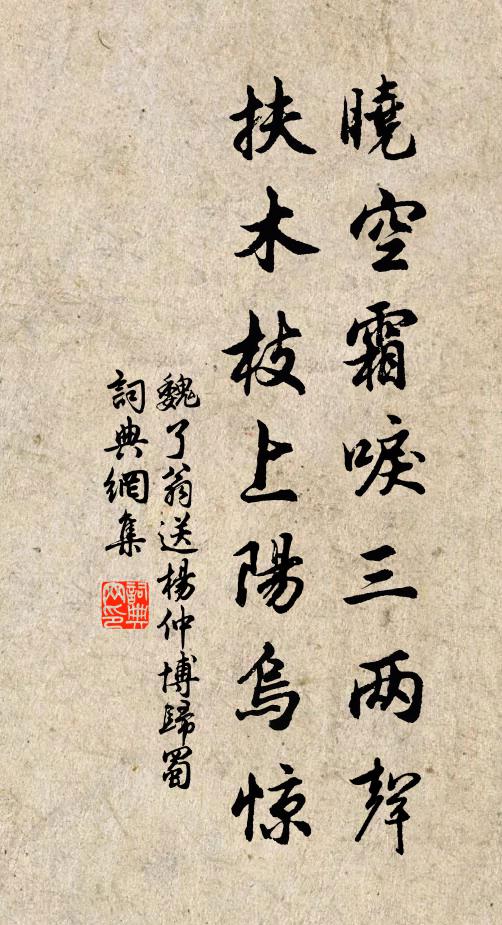 曉空霜唳三两聲
扶木枝上陽烏惊
魏了翁送楊仲博歸蜀
詞典網集
詞典网印